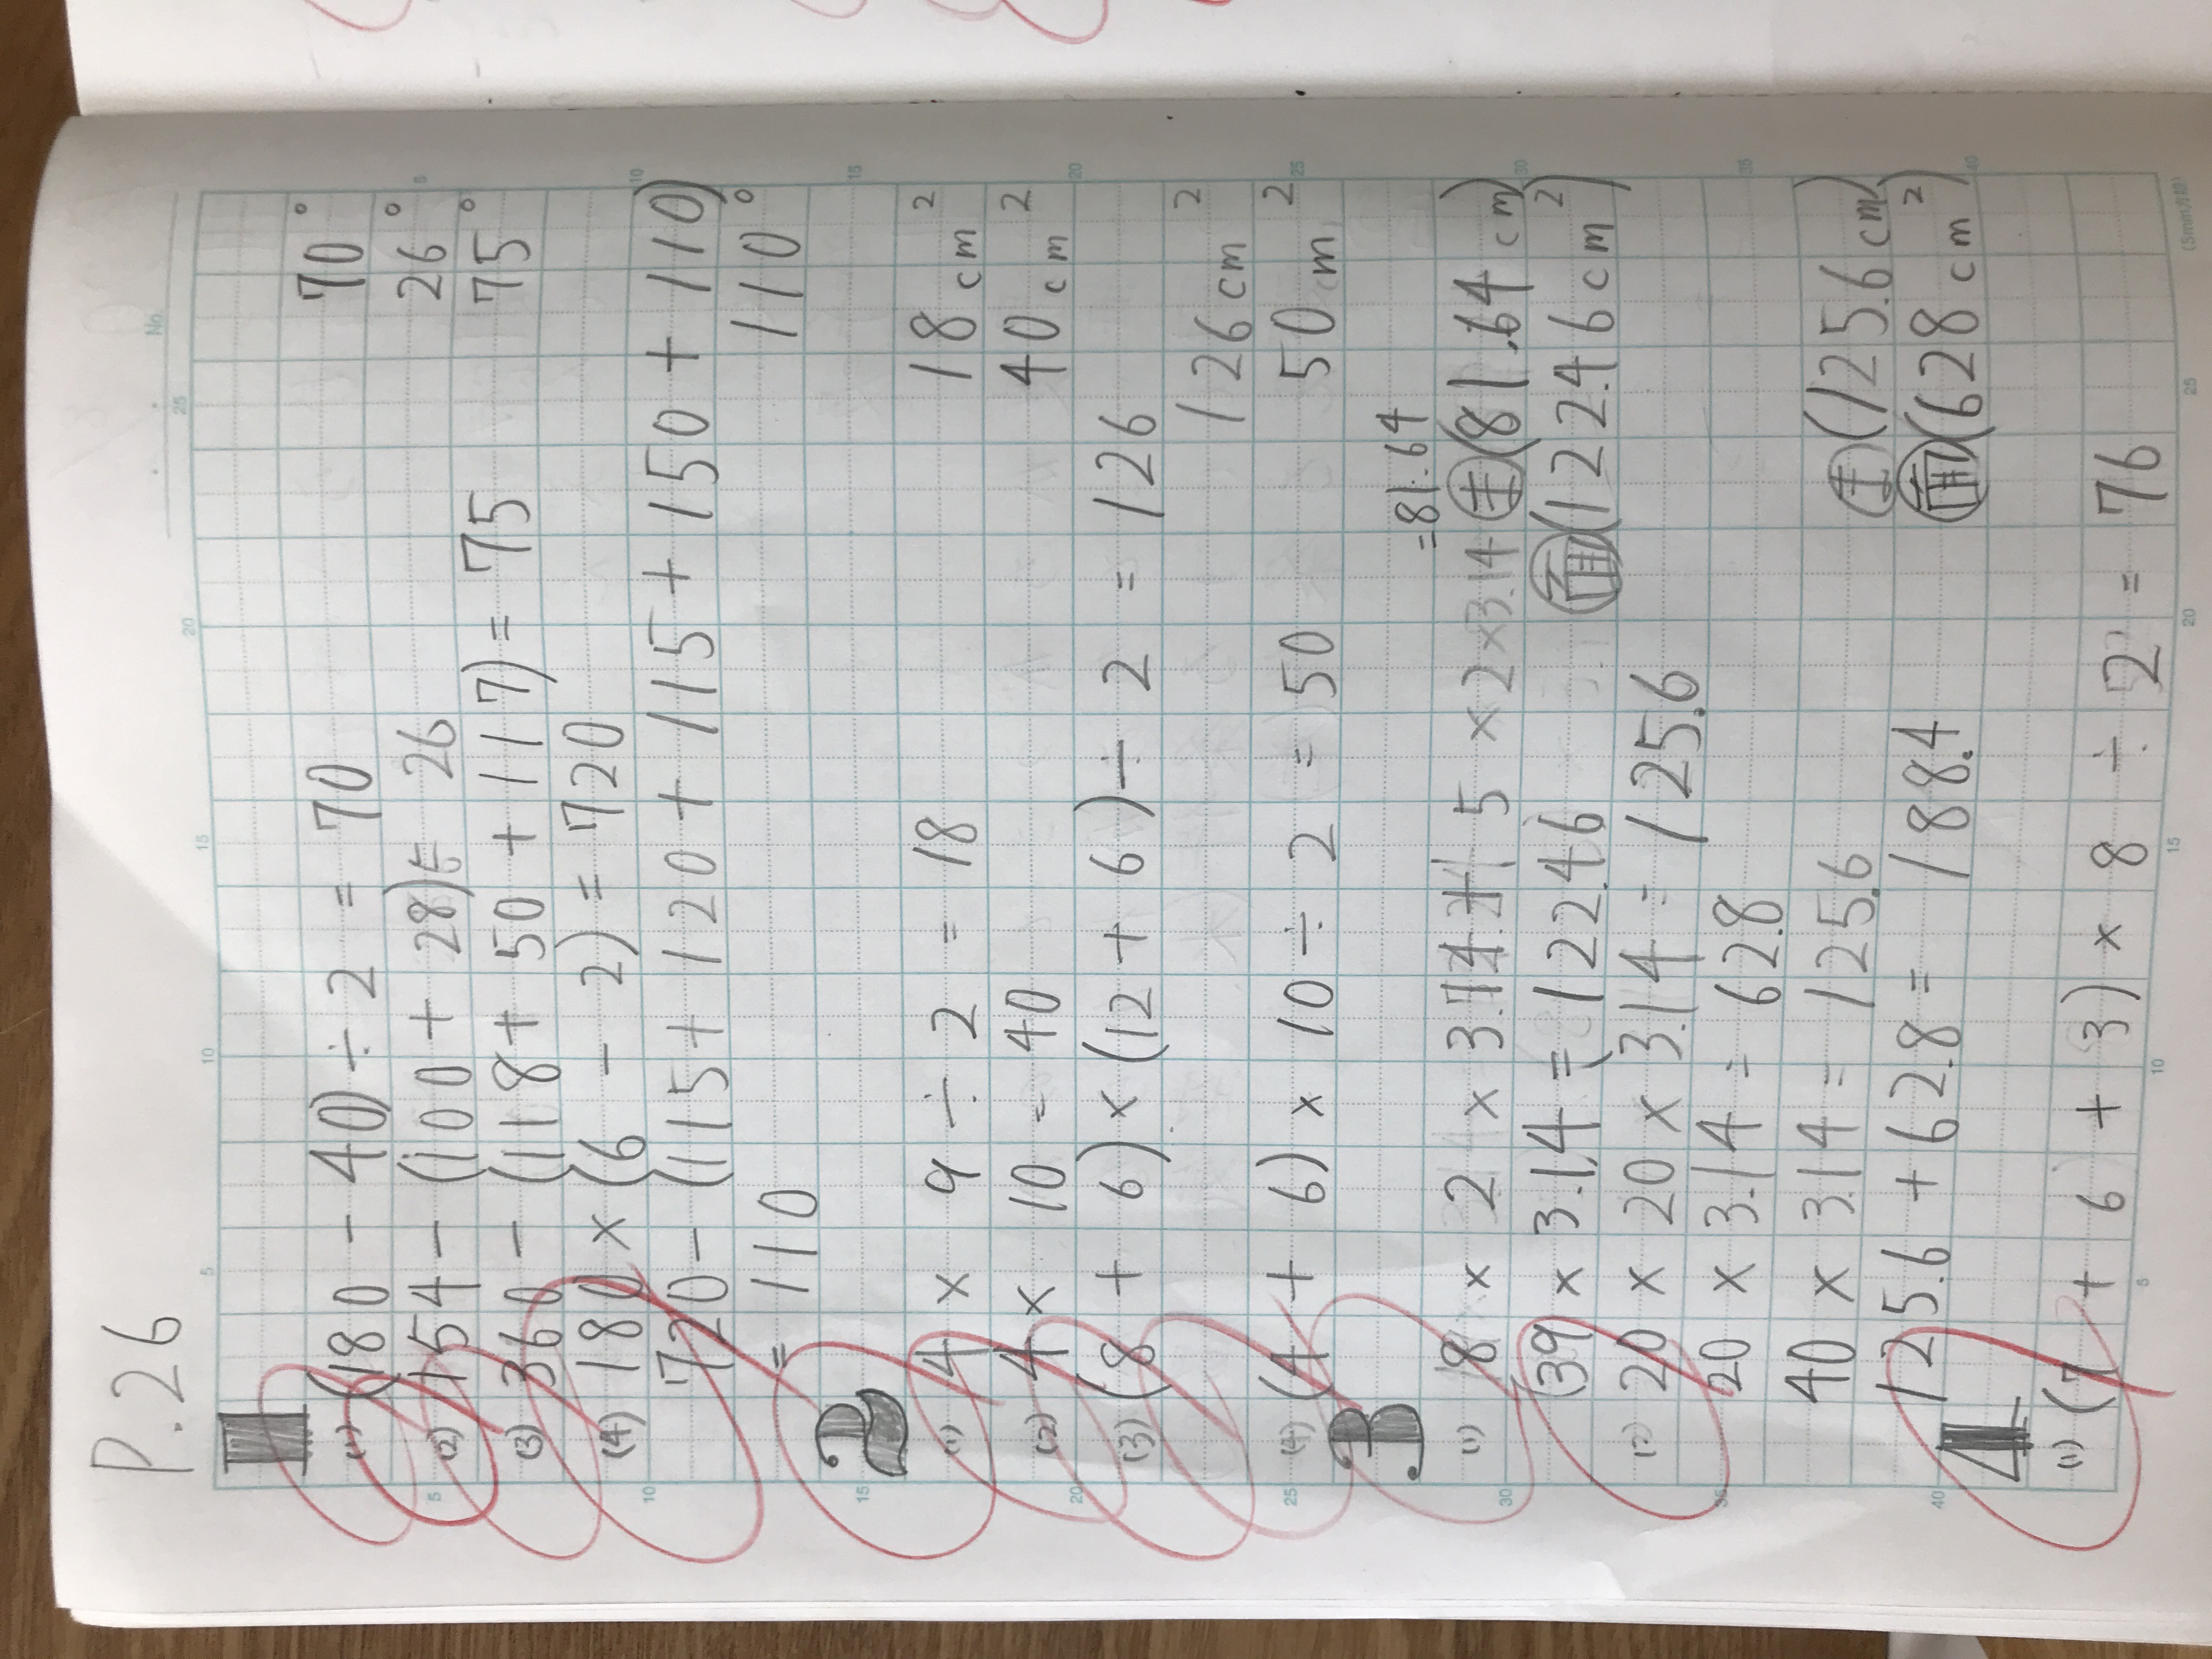 No.
P.26
1
(1) (180 - 40) ÷ 2 = 70 70°
(2) 154 - (100 + 28) = 26 26°
(3) 360 - (118 + 50 + 117) = 75 75°
(4) 180 × (6 - 2) = 720
720 - (115 + 120 + 115 + 150 + 110)
= 110 110°
2
(1) 4 × 9 ÷ 2 = 18 18cm²
(2) 4 × 10 = 40 40cm²
(3) (8 + 6) × (12 + 6) ÷ 2 = 126
126cm²
(4) (4 + 6) × 10 ÷ 2 = 50 50cm²
3
=81.64
(1) 18 × 2 × 3.14 5 × 2 × 3.14 周(81.64cm)
(39 × 3.14 = 122.46 面(122.46cm²)
20 × 20 × 3.14 = 125.6
20 × 3.14 = 62.8
40 × 3.14 = 125.6 周(125.6cm)
125.6 + 62.8 = 188.4 面(628cm²)
4
(1) (7 + 6 + 3) × 8 ÷ 2 = 76
(5mm方眼)